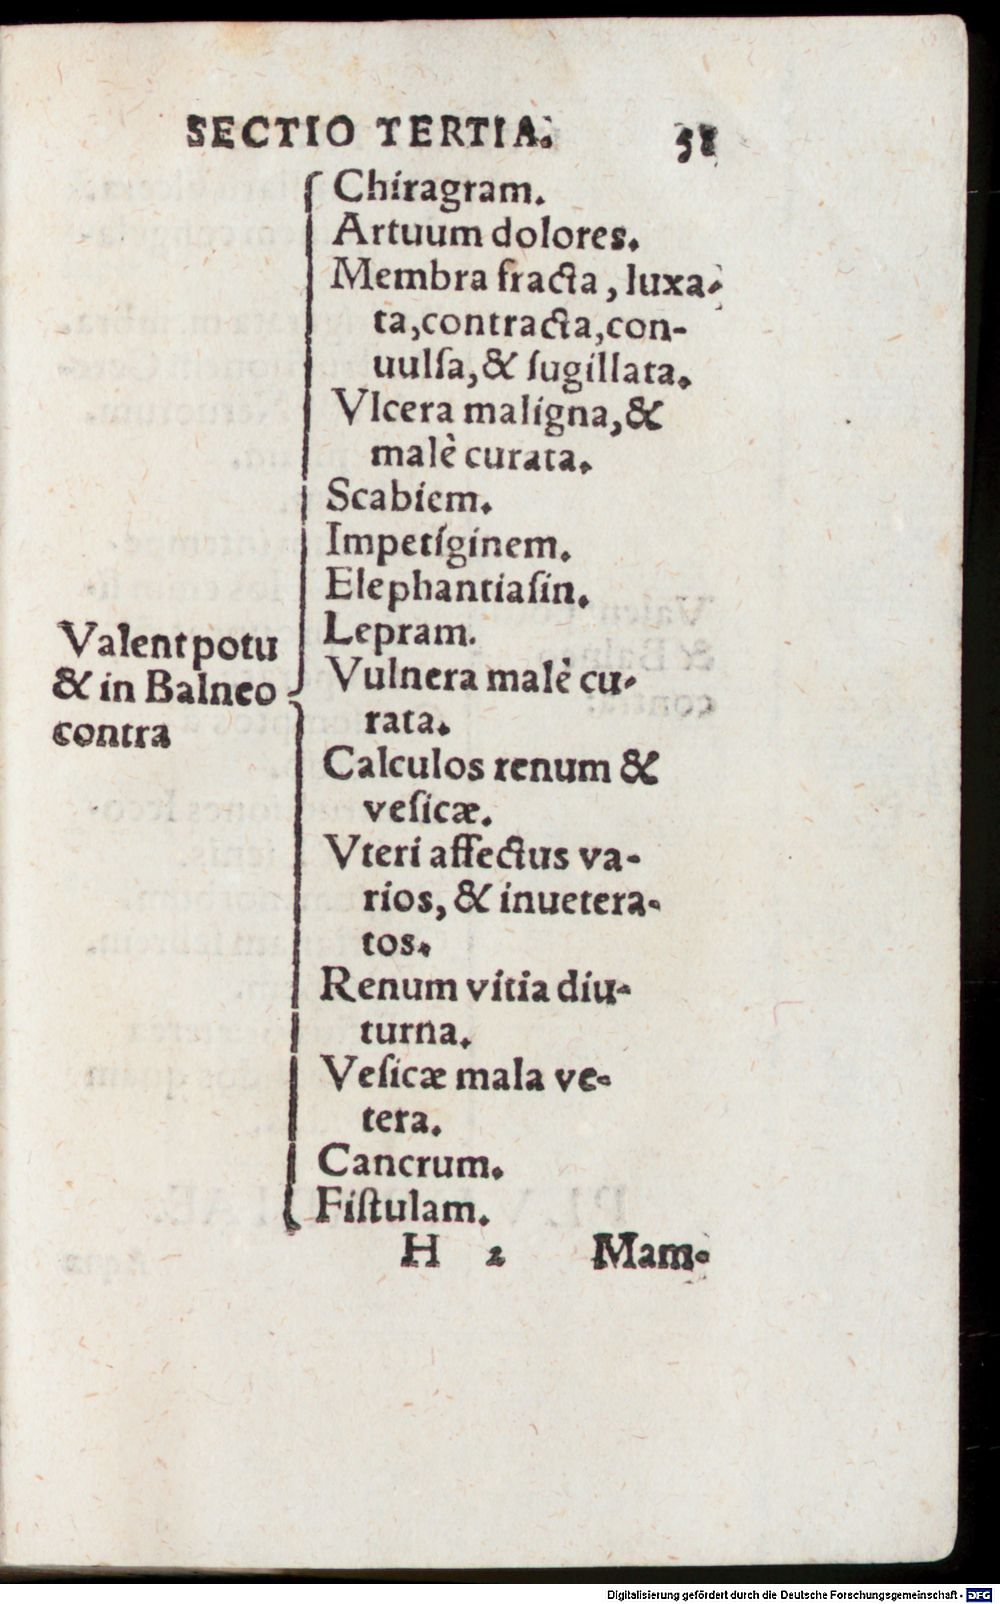 SECTIO TERTIA. 58
Chiragram.
Artuum dolores.
Membra fracta, luxa-
ta, contracta, con-
uulſa, & ſugillata.
Vlcera maligna, &
malè curata.
Scabiem.
Impetiginem.
Elephantiaſin.
Lepram.
Valent potu
& in Balneo
contra
Vulnera malè cu-
rata.
Calculos renum &
veſicæ.
Vteri affectus va-
rios, & inuetera-
tos.
Renum vitia diu-
turna.
Veſicæ mala ve-
tera.
Cancrum.
Fiſtulam.
H 2 Mam-
Digitalisierung gefördert durch die Deutsche Forschungsgemeinschaft - DFG